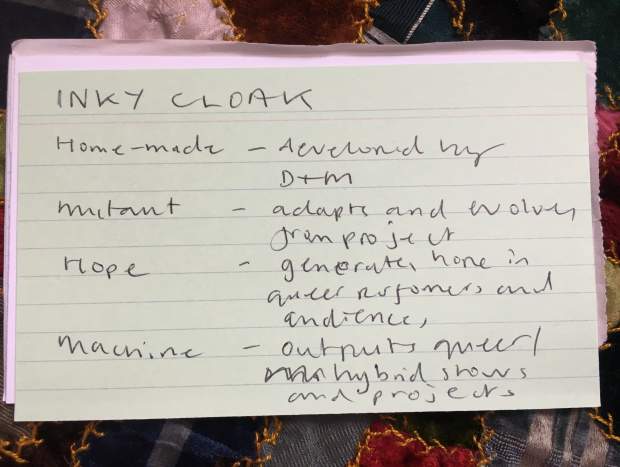 INKY CLOAK
Home-made - developed by
D+M
mutant - adapts and evolves
from project
Hope - generates hope in
queer performers and
audiences,
machine - outputs queer/
hybrid shows
and projects